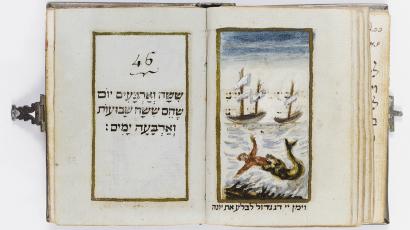 46
שִׁשָּׁה וְאַרְבָּעִים יוֹם
שֶׁהֵם שִׁשָּׁה שָׁבוּעוֹת
וְאַרְבָּעָה יָמִים:
וימן יי דג גדול לבלע את יונה